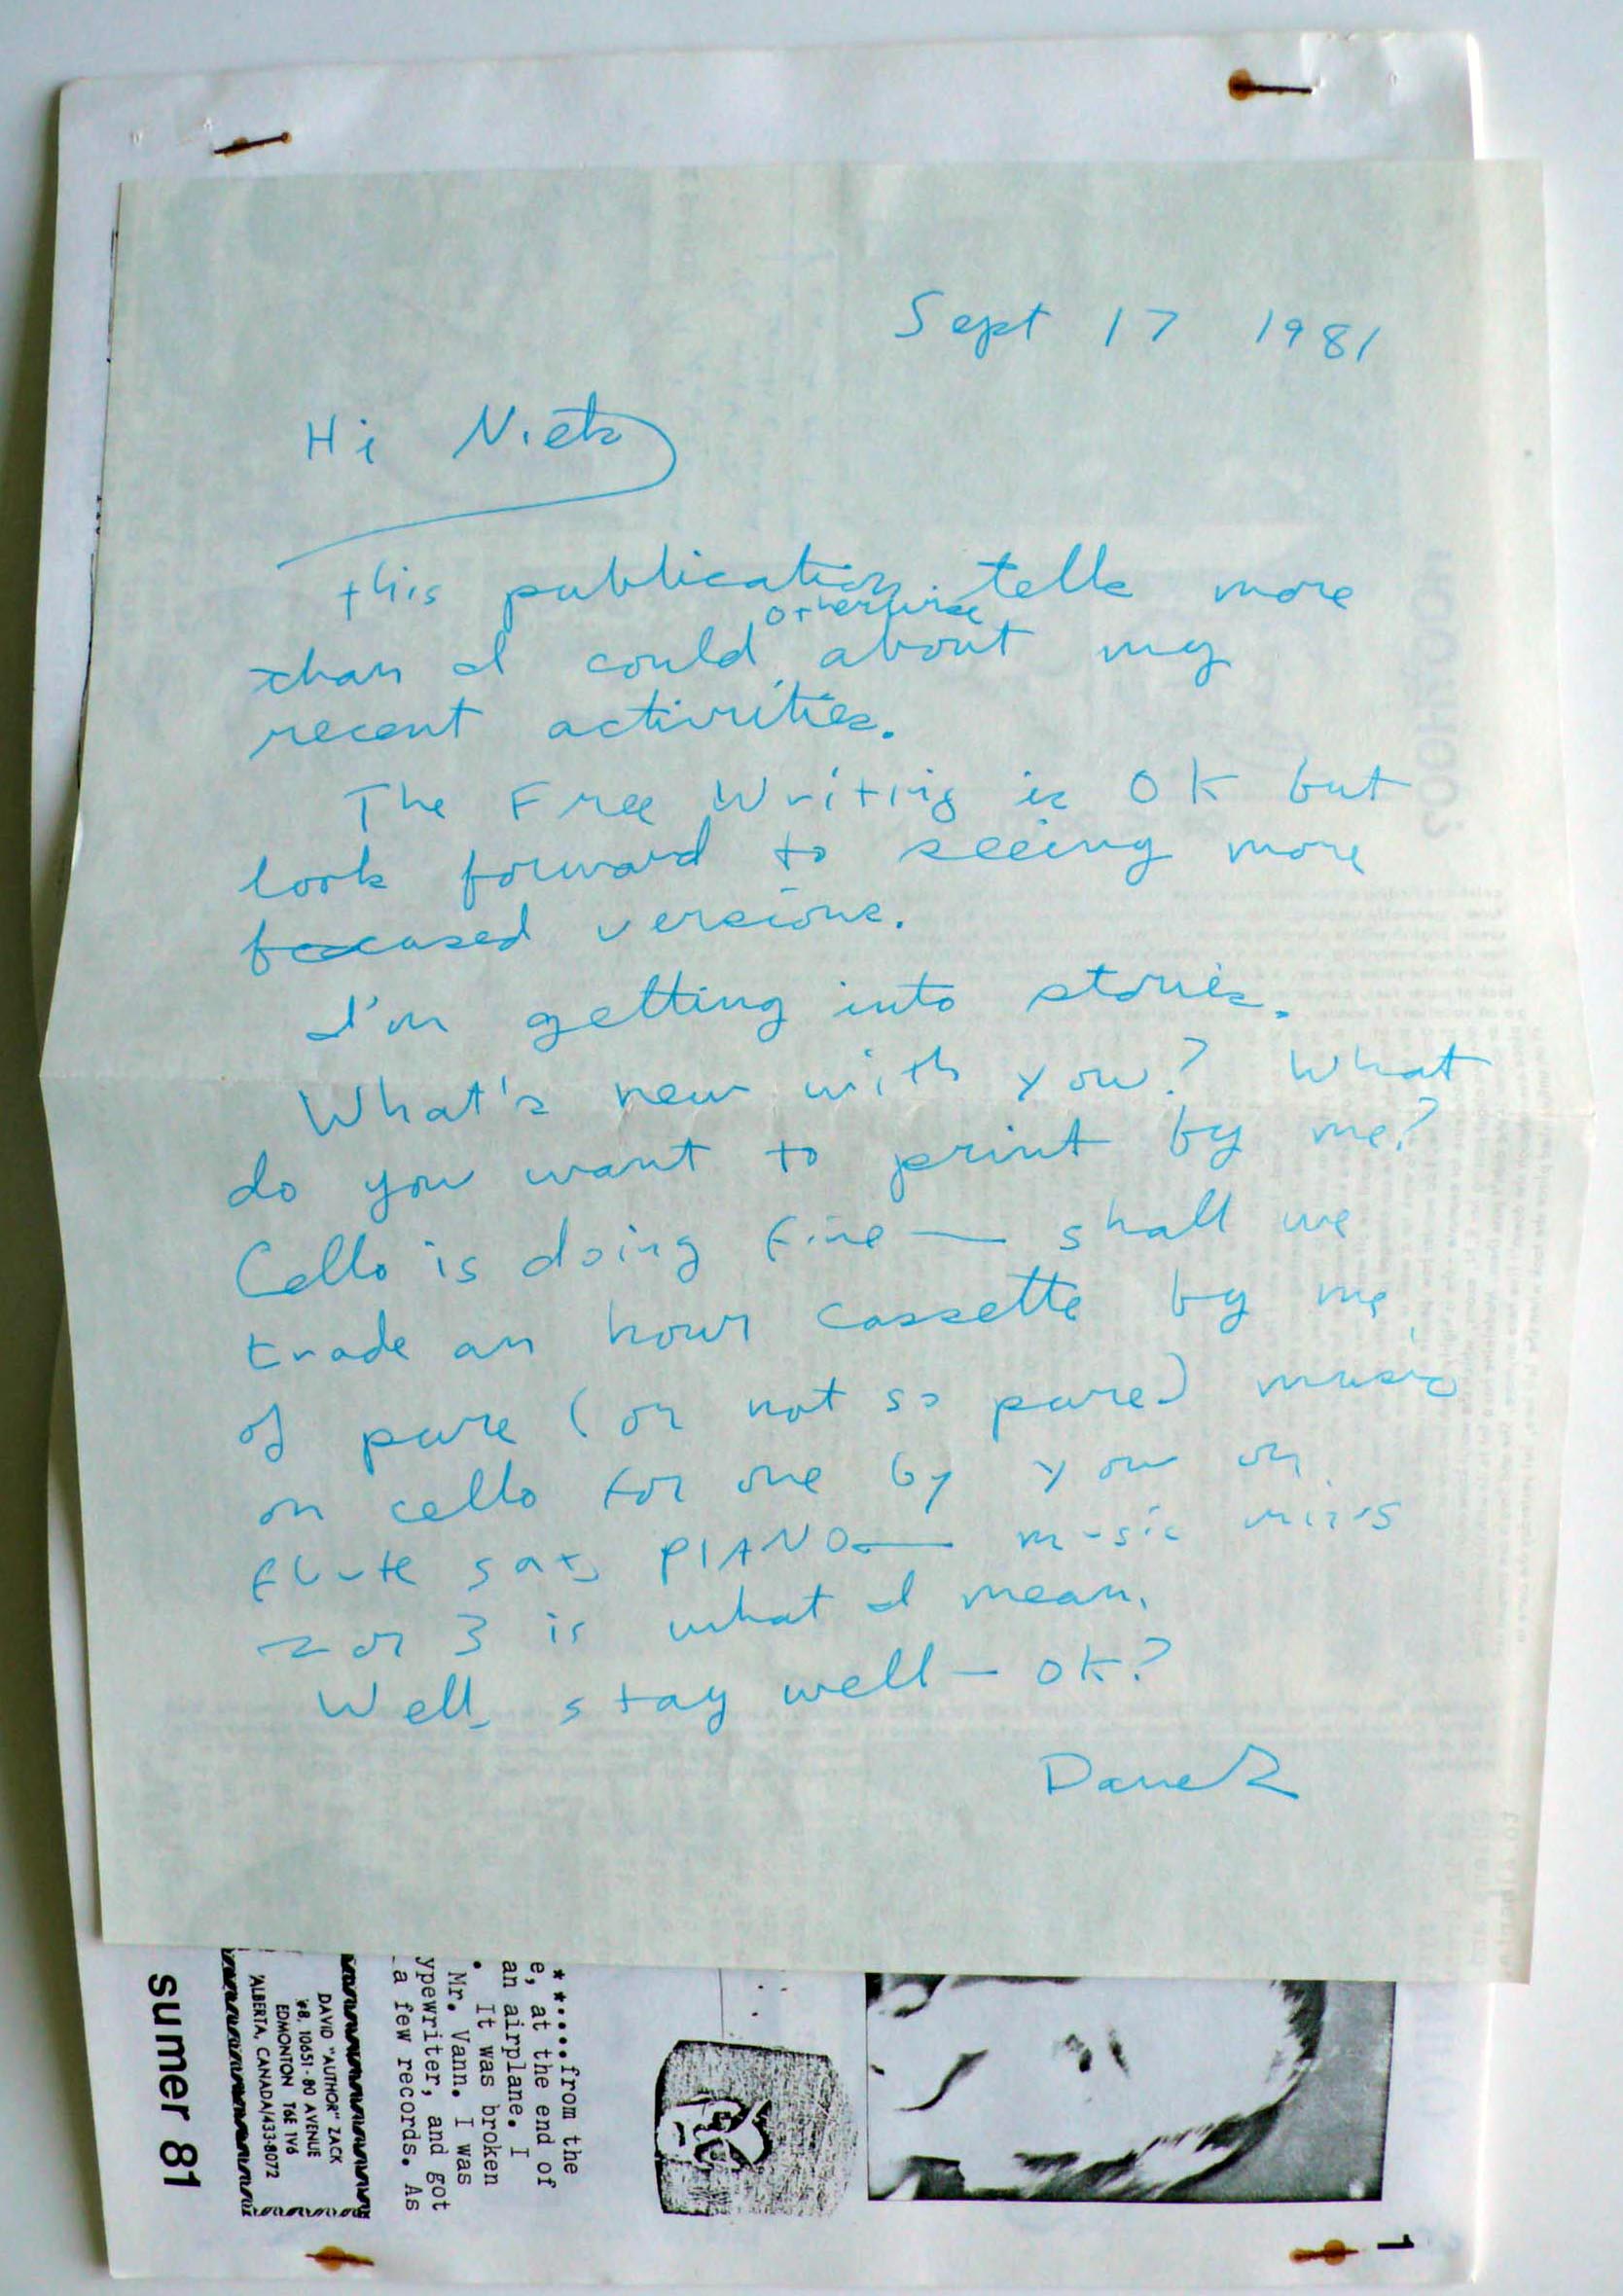 Sept 17 1981
Hi Niels
this publication tells more
otherwise
than I could about my
recent activities.
The Free Writing is OK but
look forward to seeing more
focused versions.
I'm getting into stories.
What's new with you? What
do you want to print by me?
Cello is doing fine — shall we
trade an hour cassette by me
of pure (or not so pure) music
on cello for one by you on
flute sax PIANO — music minus
2 or 3 is what I mean.
Well, stay well — OK?
Dave Z
**....from the
e, at the end of
an airplane. I
. It was broken
Mr. Vann. I was
ypewriter, and got
a few records. As
DAVID "AUTHOR" ZACK
#8, 10651-80 AVENUE
EDMONTON T6E 1V6
ALBERTA, CANADA/433-8072
sumer 81
1